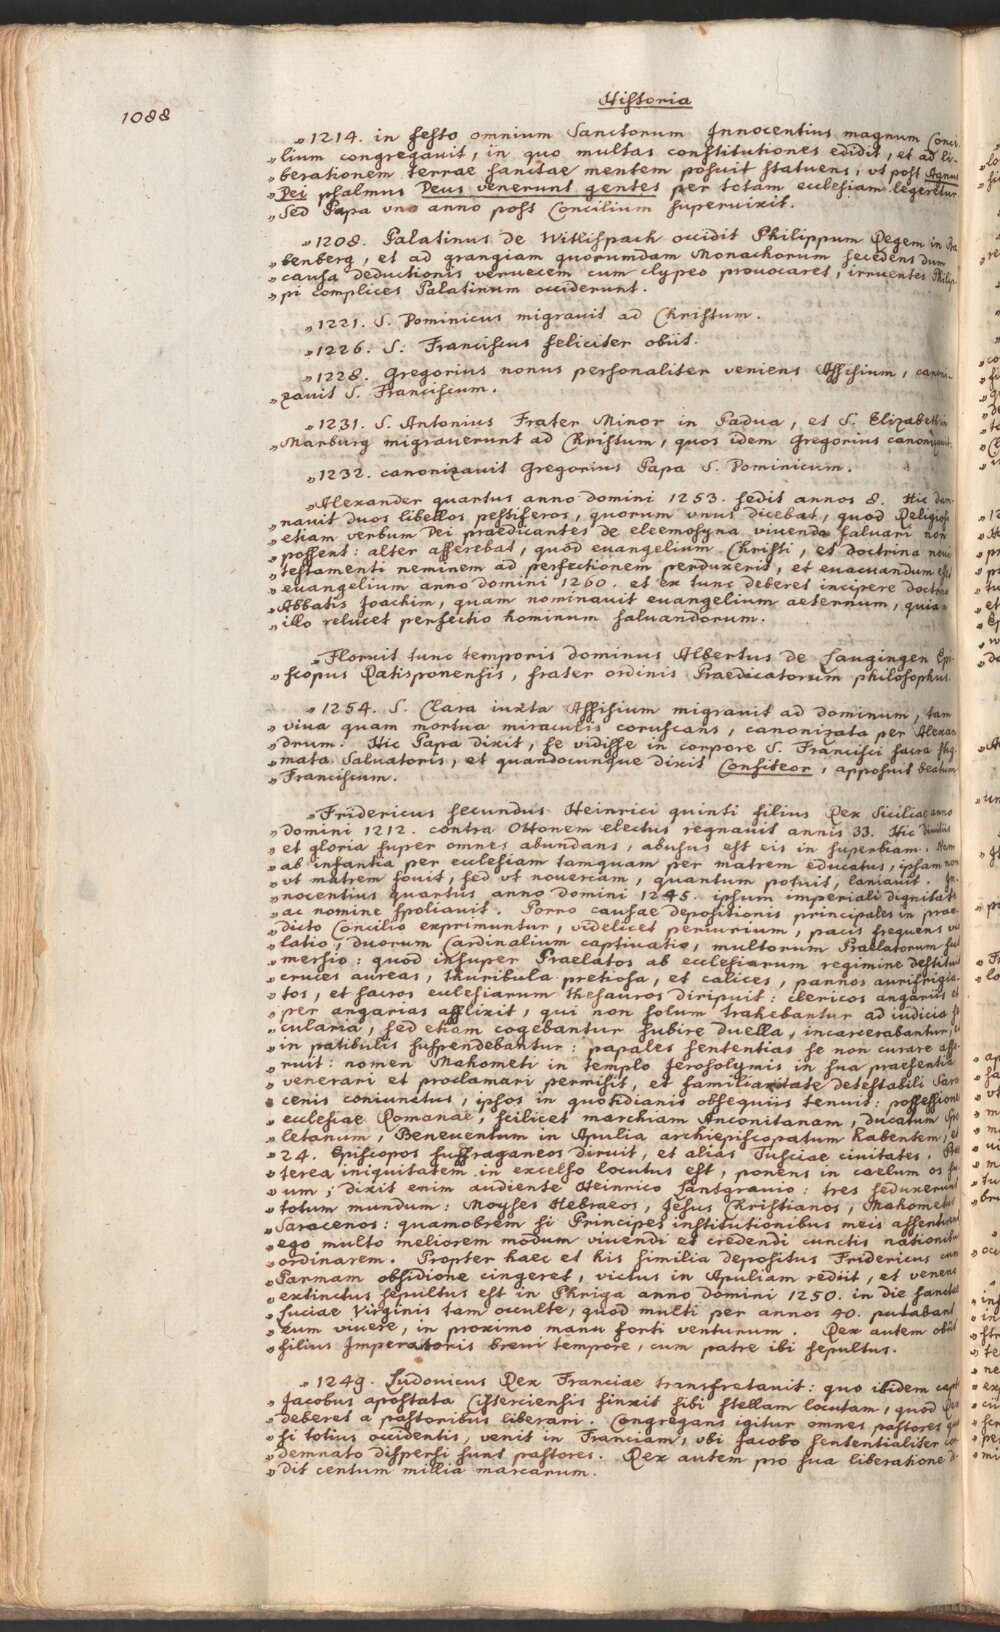 1088
Historia
„1214. in festo omnium Sanctorum Innocentius magnum Conci-
„lium congregauit, in quo multas constitutiones edidit, et ad li-
„berationem terrae sanctae mentem posuit statuens, vt post Agnus
„Dei psalmus Deus venerunt gentes per totam ecclesiam legeretur
„Sed Papa vno anno post Concilium superuixit.
„1208. Palatinus de Witlispach occidit Philippum Regem in Ba
„benberg, et ad grangiam quorumdam Monachorum secedens dum
„causa deductionis veruecem cum clypeo prouocaret, irruentes Philip-
„pi complices Palatinum occiderunt.
„1221. S. Dominicus migrauit ad Christum.
„1226. S. Franciscus feliciter obiit.
„1228. Gregorius nonus personaliter veniens Assisium, canoni-
„zauit S. Franciscum.
„1231. S. Antonius Frater Minor in Padua, et S. Elizabeth in
„Marburg migrauerunt ad Christum, quos idem Gregorius canonizauit.
„1232. canonizauit Gregorius Papa S. Dominicum.
„Alexander quartus anno domini 1253. sedit annos 8. Hic dam-
„nauit duos libellos pestiferos, quorum vnus dicebat, quod Religiosi
„etiam verbum Dei praedicantes de eleemosyna viuendo saluari non
„possent: alter asserebat, quod euangelium Christi, et doctrina noui
„testamenti neminem ad perfectionem perduxerit, et euacuandum esset
„euangelium anno domini 1260. et ex tunc deberet incipere doctrina
„Abbatis Joachim, quam nominauit euangelium aeternum, quia in
„illo relucet perfectio hominum saluandorum.
„Floruit tunc temporis dominus Albertus de Laugingen Epi-
„scopus Ratisponensis, frater ordinis Praedicatorum philosophus.
„1254. S. Clara iuxta Assisium migrauit ad dominum, tam
„viua quam mortua miraculis coruscans, canonizata per Alexan
„drum. Hic Papa dixit, se vidisse in corpore S. Francisci sacra stig
„mata Saluatoris, et quandocunque dixit Confiteor, apposuit beatum
„Franciscum.
„Fridericus secundus Heinrici quinti filius Rex Siciliae anno
„domini 1212. contra Ottonem electus regnauit annis 33. Hic diuitiis
„et gloria super omnes abundans, abusus est eis in superbiam. Nam
„ab infantia per ecclesiam tamquam per matrem educatus, ipsam non
„vt matrem fouit, sed vt nouercam, quantum potuit, laniauit. In-
„nocentius quartus anno domini 1245. ipsum imperiali dignitate
„ac nomine spoliauit. Porro causae depositionis principales in prae-
„dicto Concilio exprimuntur, videlicet periurium, pacis frequens vio
„latio, duorum Cardinalium captiuatio, multorum Praelatorum sub
„mersio: quod insuper Praelatos ab ecclesiarum regimine destituit
„cruces aureas, thuribula pretiosa, et calices, pannos aurifrigia-
„tos, et sacros ecclesiarum thesauros diripuit: clericos angariis et
„per angarias afflixit, qui non solum trahebantur ad iudicia se
„cularia, sed etiam cogebantur subire duella, incarcerabantur, et
„in patibulis suspendebantur: papales sententias se non curare asse
„ruit: nomen Mahometi in templo Jerosolymis in sua praesentia
„venerari et proclamari permisit, et familiaritate detestabili Sara
„cenis coniunctus, ipsos in quotidianis obsequiis tenuit: possessiones
„ecclesiae Romanae, scilicet marchiam Anconitanam, ducatum Spo
„letanum, Beneuentum in Apulia archiepiscopatum habentem, et
„24. Episcopos suffraganeos diruit, et alias Tusciae ciuitates. Prae
„terea iniquitatem in excelso locutus est, ponens in caelum os su
„um; dixit enim audiente Heinrico Lantgrauio: tres seduxerunt
„totum mundum: Moyses Hebraeos, Jesus Christianos, Mahometus
„Saracenos: quamobrem si Principes institutionibus meis assentirent
„ego multo meliorem modum viuendi et credendi cunctis nationibus
„ordinarem. Propter haec et his similia depositus Fridericus cum
„Parmam obsidione cingeret, victus in Apuliam rediit, et veneno
„extinctus sepultus est in Phriga anno domini 1250. in die sanctae
„Luciae Virginis tam occulte, quod multi per annos 40. putabant
„eum viuere, in proximo manu forti venturum. Rex autem obiit
„filius Imperatoris breui tempore, cum patre ibi sepultus.
„1249. Ludouicus Rex Franciae transfretauit: quo ibidem capto
„Jacobus apostata Cisterciensis finxit sibi stellam locutam, quod Rex
„deberet a pastoribus liberari. Congregans igitur omnes pastores qua
„si totius occidentis, venit in Franciam, vbi Jacobo sententialiter con
„demnato dispersi sunt pastores. Rex autem pro sua liberatione de-
„dit centum millia marcarum.